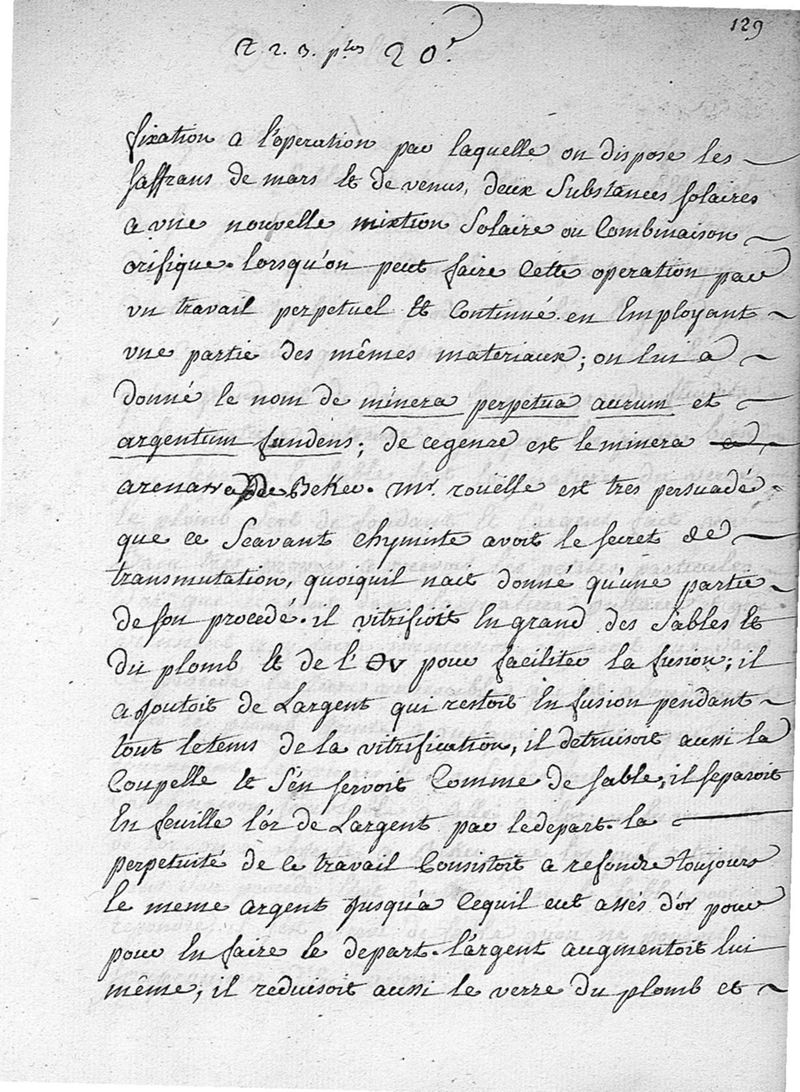 129
T. 2. 3. p.tes 20.e
fixation a l'operation par laquelle on dispose les
saffrans de mars et de venus, deux Substances solaires
a vne nouvelle mixtion Solaire ou Combinaison
orifique. lorsqu'on peut faire Cette operation par
vn travail perpetuel et Continué en Employant
vne partie des mêmes materiaux; on lui a
donné le nom de minera perpetua aurum et
argentum fundens; de cegenre est le minera
arenaria de Beker. Mr. rouelle est tres persuadé
que ce Scavant chymiste avoit le secret de
transmutation, quoiquil nait donné qu'une partie
de son procedé. il vitrifioit En grand des Sables et
du plomb et de l'ov pour faciliter la fusion; il
ajoutoit de Largent qui restoit En fusion pendant
tout letems de la vitrification, il detruisoit aussi la
Coupelle et S'en servoit Comme de sable; il separoit
En feuille l'or de Largent par ledepart. la
perpetuité de ce travail Consistoit a refondre toujours
le meme argent Jusqua Cequil eut assés d'or pour
pour En faire le depart. l'argent augmentoit lui
même, il reduisoit aussi le verre du plomb et